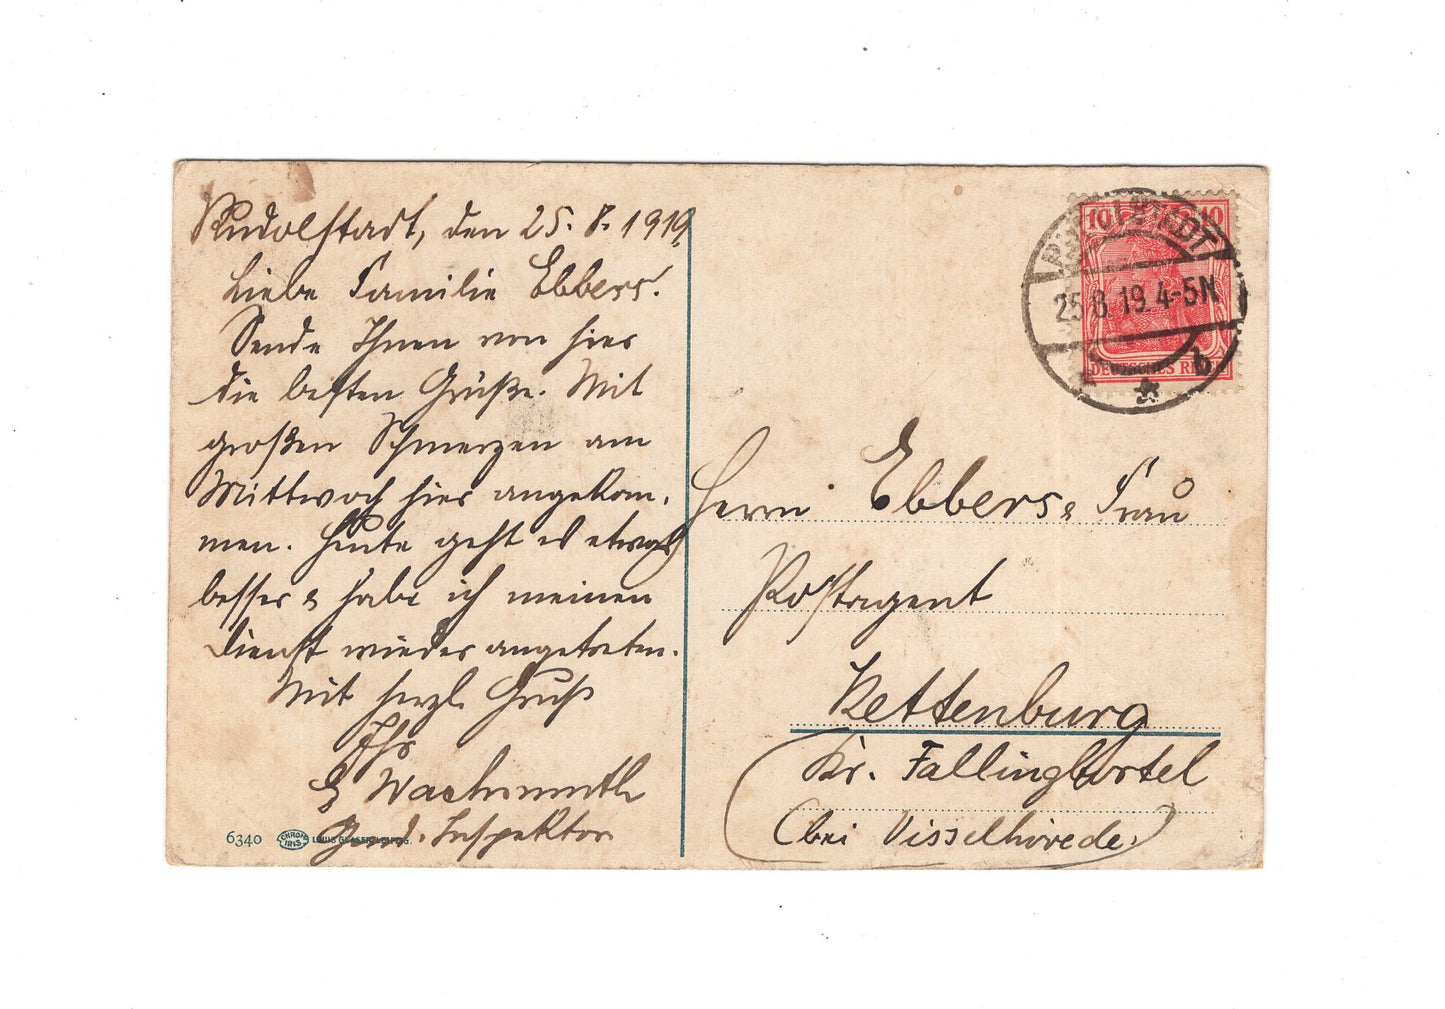 Rudolstadt, den 25. 8. 1919.
Liebe Familie Ebbers!
Sende Ihnen von hier
die besten Grüße. Mit
großen Schmerzen am
Mittwoch hier angekom-
men. Heute geht es etwas
besser & habe ich meinen
Dienst wieder angetreten.
Mit herzl. Gruß
Ihr
Wachsmuth
Inspektor
6340 CHROM IRIS LOUIS GLASER LEIPZIG.
10 10
DEUTSCHES REICH
25.8.19.4-5N
* b
Herrn Ebbers & Frau
Postagent
Kettenburg
Kr. Fallingbostel
(bei Visselhövede)